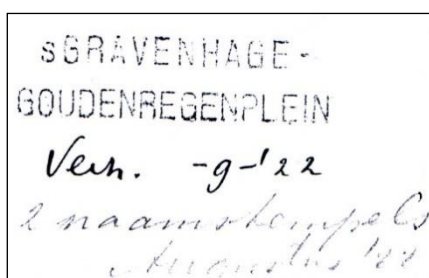 sGRAVENHAGE-
GOUDENREGENPLEIN
Verh. -9-'22
2 naamstempels
Augustus '22